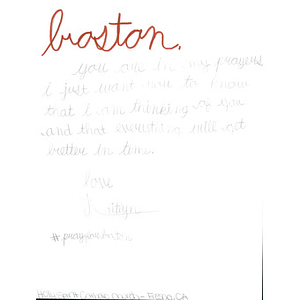 boston.
you are in my prayers
i just want you to know
that i am thinking of you
and that everything will get
better in time.
love
#prayforboston
Holy Spirit Catholic Church - Fresno, CA